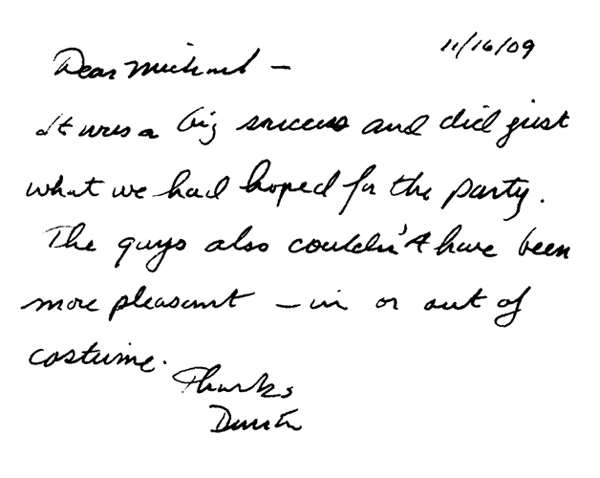 11/16/09
Dear Michael —
It was a big success and did just
what we had hoped for the party.
The guys also couldn't have been
more pleasant — in or out of
costume.
Thanks